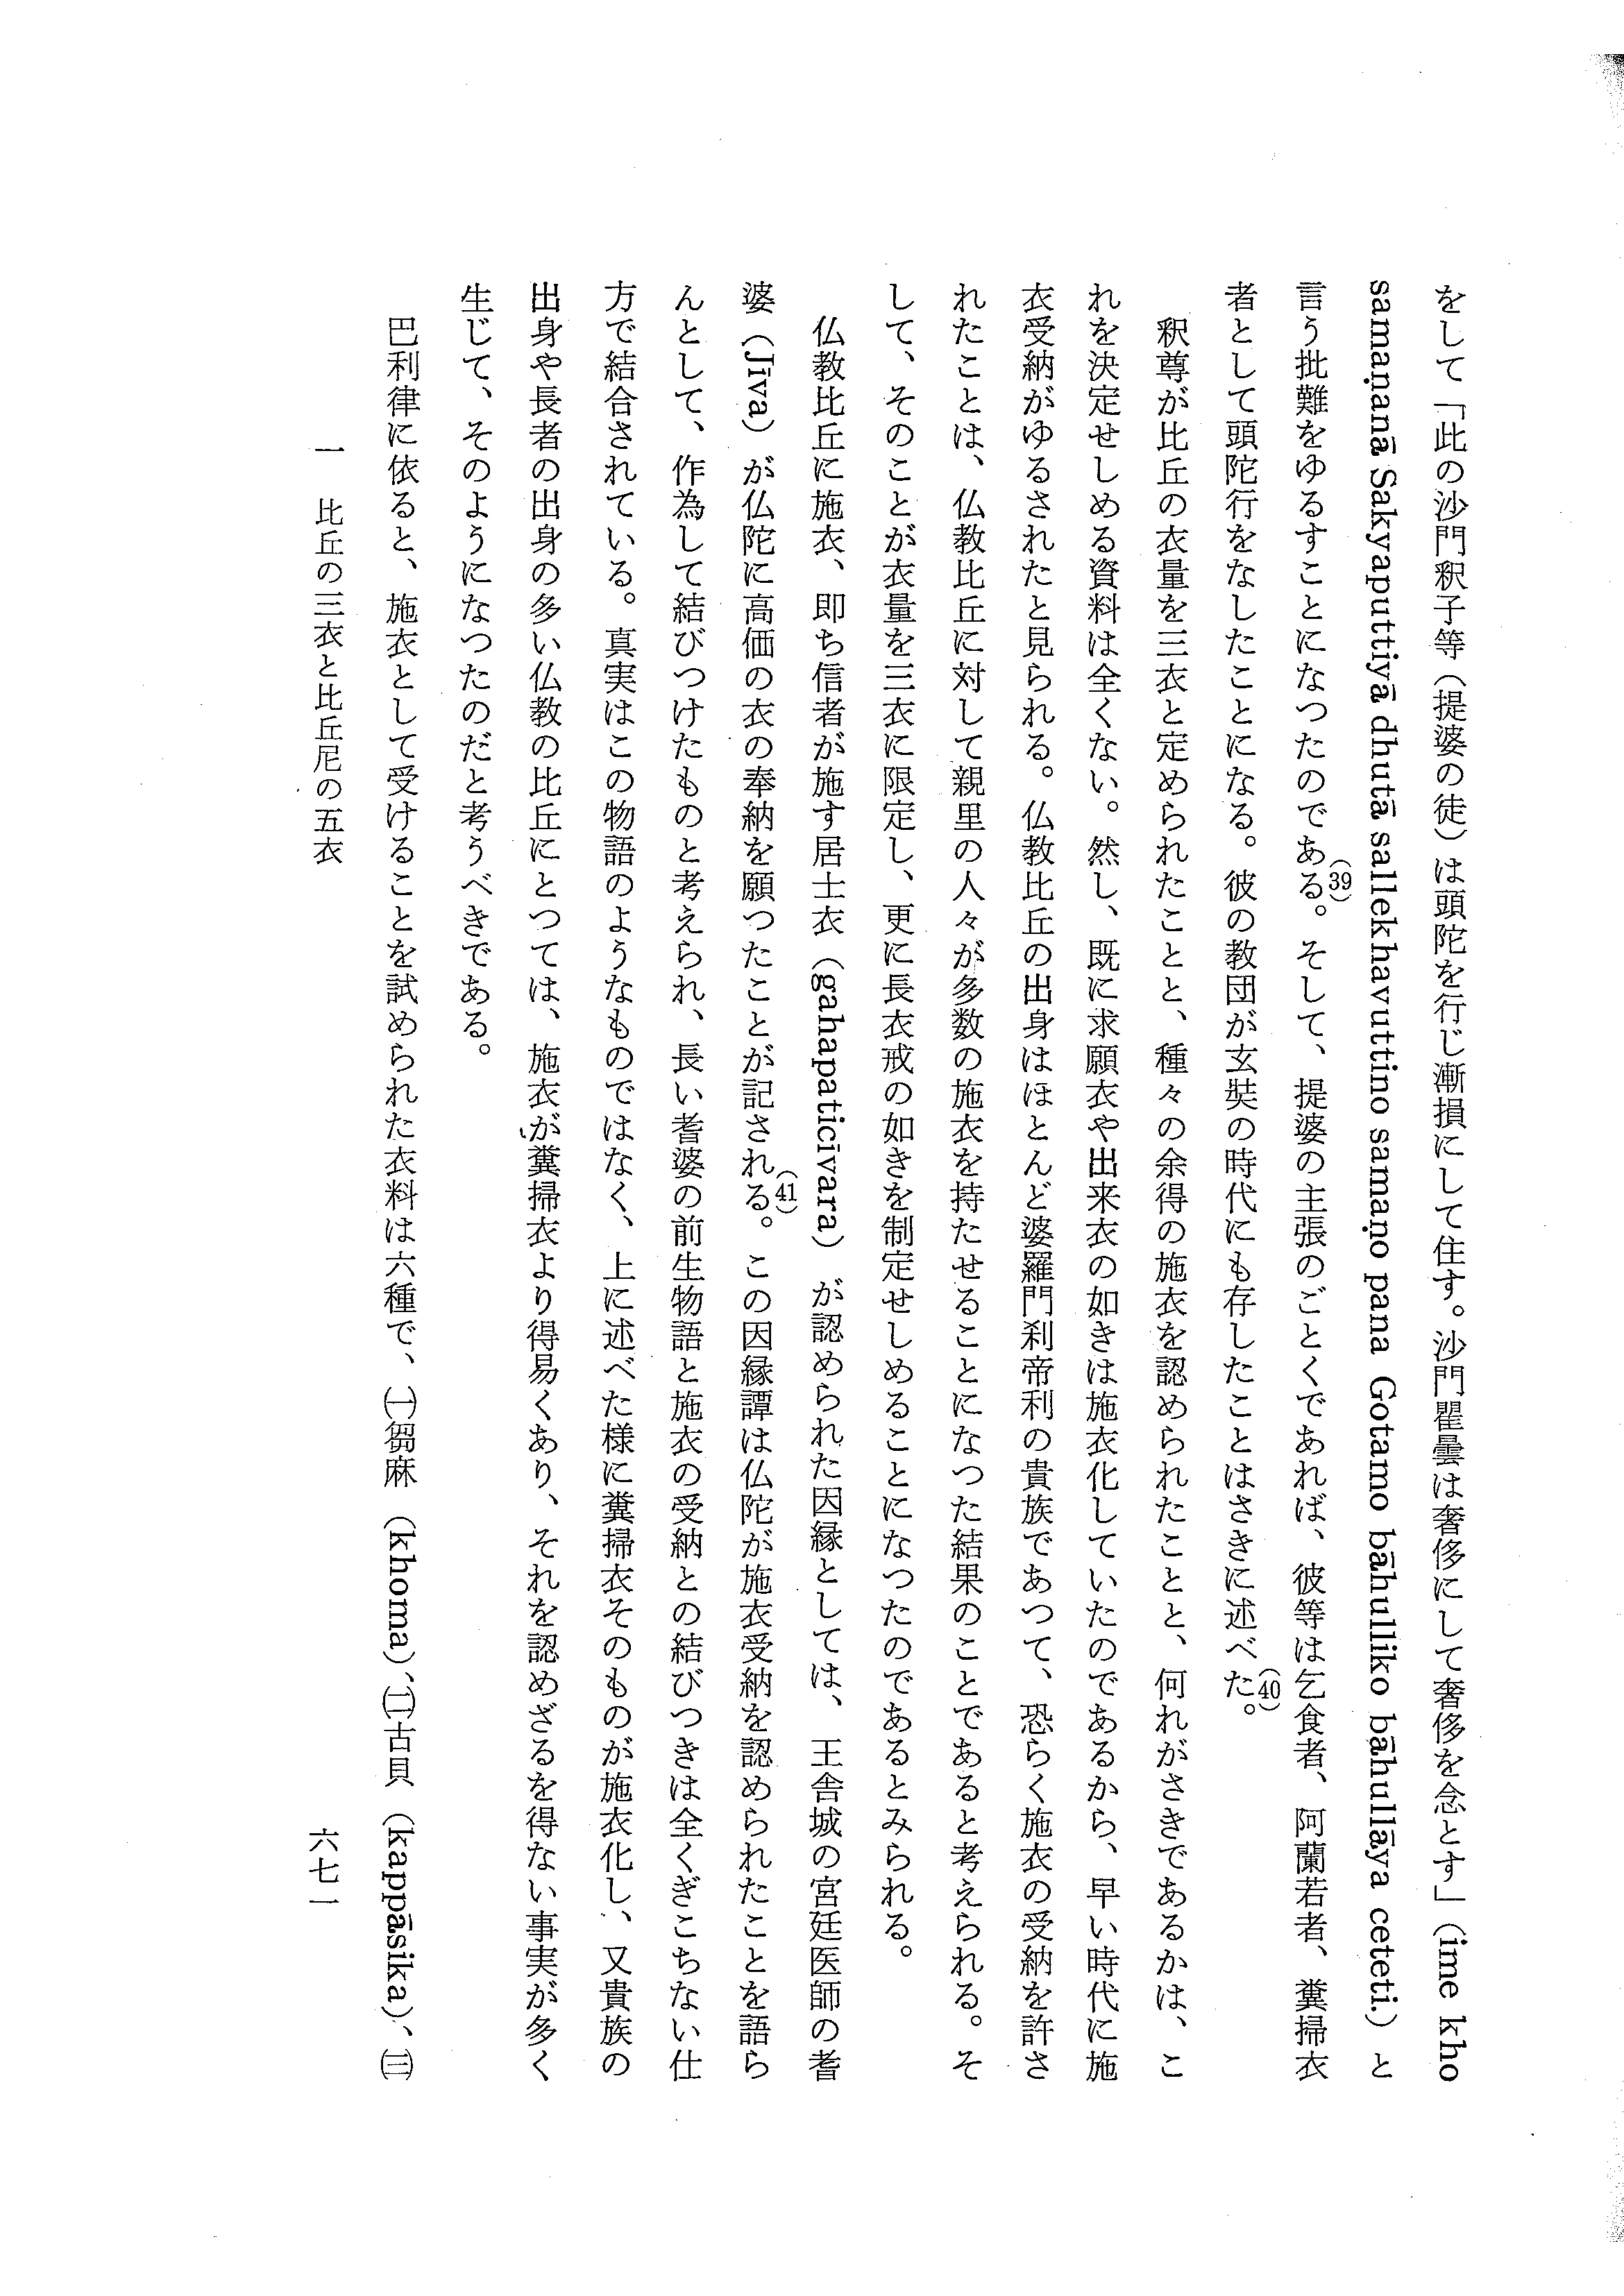 をして「此の沙門釈子等（提婆の徒）は頭陀を行じ漸損にして住す。沙門瞿曇は奢侈にして奢侈を念とす」（ime kho
samaṇanā Sakyaputtiyā dhutā sallekhavuttino samaṇo pana Gotamo bāhulliko bāhullāya ceteti.）と
言う批難をゆるすことになつたのである。(39)そして、提婆の主張のごとくであれば、彼等は乞食者、阿蘭若者、糞掃衣
者として頭陀行をなしたことになる。彼の教団が玄奘の時代にも存したことはさきに述べた。(40)
釈尊が比丘の衣量を三衣と定められたことと、種々の余得の施衣を認められたことと、何れがさきであるかは、こ
れを決定せしめる資料は全くない。然し、既に求願衣や出来衣の如きは施衣化していたのであるから、早い時代に施
衣受納がゆるされたと見られる。仏教比丘の出身はほとんど婆羅門刹帝利の貴族であつて、恐らく施衣の受納を許さ
れたことは、仏教比丘に対して親里の人々が多数の施衣を持たせることになつた結果のことであると考えられる。そ
して、そのことが衣量を三衣に限定し、更に長衣戒の如きを制定せしめることになつたのであるとみられる。
仏教比丘に施衣、即ち信者が施す居士衣（gahapaticīvara）が認められた因縁としては、王舎城の宮廷医師の耆
婆（Jīva）が仏陀に高価の衣の奉納を願つたことが記される。(41)この因縁譚は仏陀が施衣受納を認められたことを語ら
んとして、作為して結びつけたものと考えられ、長い耆婆の前生物語と施衣の受納との結びつきは全くぎこちない仕
方で結合されている。真実はこの物語のようなものではなく、上に述べた様に糞掃衣そのものが施衣化し、又貴族の
出身や長者の出身の多い仏教の比丘にとつては、施衣が糞掃衣より得易くあり、それを認めざるを得ない事実が多く
生じて、そのようになつたのだと考うべきである。
巴利律に依ると、施衣として受けることを試められた衣料は六種で、㈠芻麻（khoma）、㈡古貝（kappāsika）、㈢
一　比丘の三衣と比丘尼の五衣
六七一